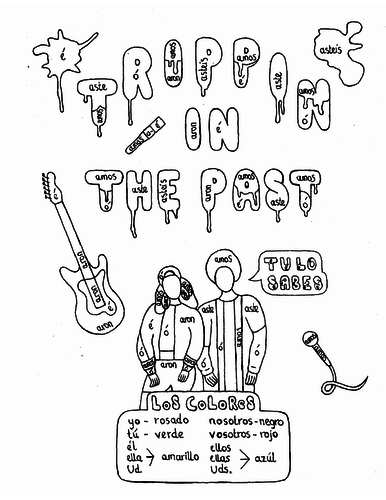 é
asteis
TRIPPIN
aste
aron
ó
é
amos
aron
asteis
amos
ó
aste
amos
ó
amos
ó
é
IN
aron
ó
THE PAST
amos
aste
asteis
é
aron
amos
aste
amos
ó
aron
aron
é
aron
amos
TU LO
SABES
aste
aste
é
é
aron
ó
ó
aron
LOS COLORES
yo - rosado
tú - verde
él
ella > amarillo
Ud.
nosotros - negro
vosotros - rojo
ellos
ellas > azúl
Uds.